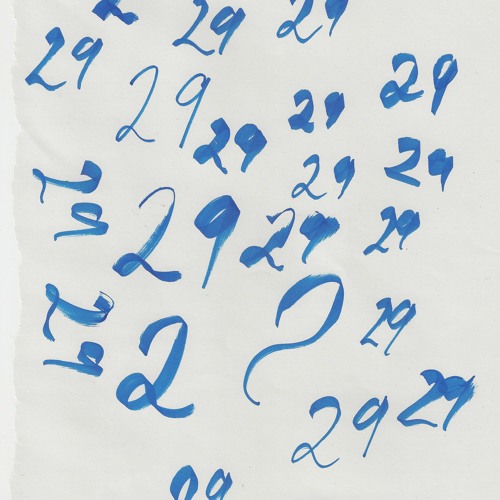 2 29 29
29 29 29 29
29 29 29
29 29 29 29
29 2 9 29
29 29
29